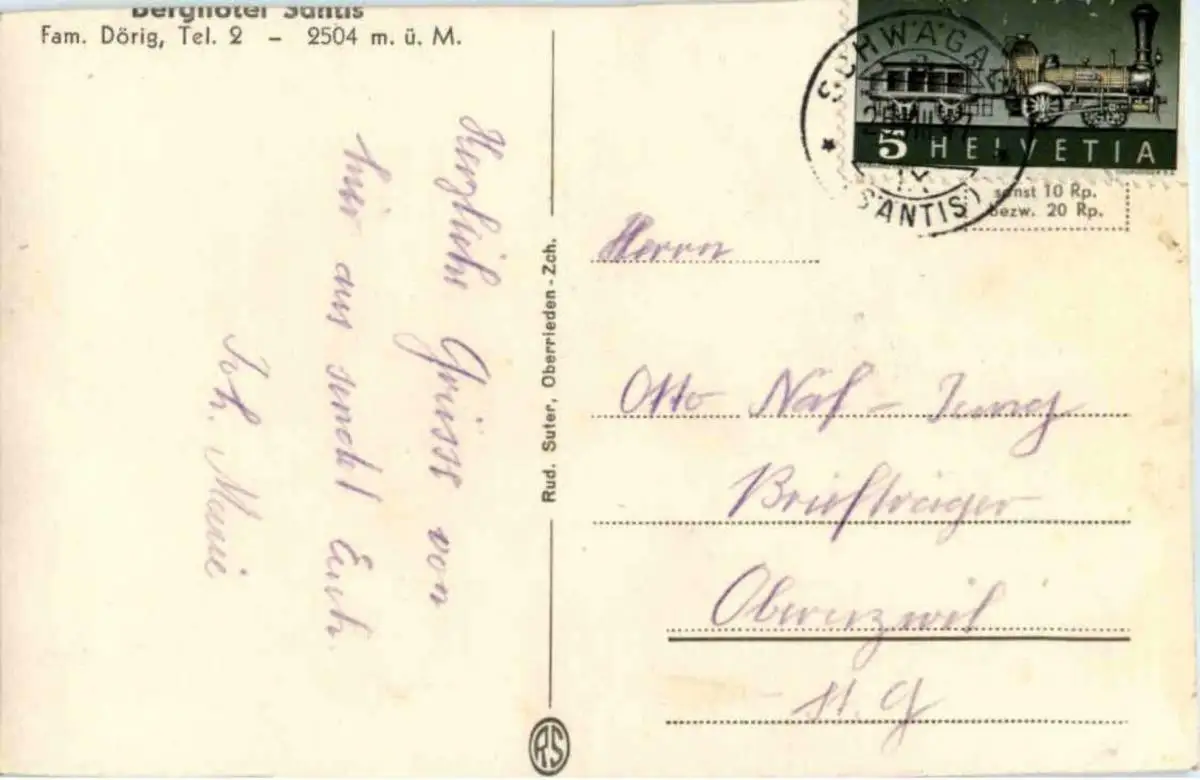 Berghotel Säntis
Fam. Dörig, Tel. 2 – 2504 m. ü. M.
Herzliche Grüsse von
hier aus sendet Euch
Joh. Marie
Rud. Suter, Oberrieden - Zch.
RS
SCHWÄGA
(SÄNTIS)
5 HELVETIA
sonst 10 Rp.
bezw. 20 Rp.
Herrn
Otto Näf –
Briefträger
Oberuzwil
St. G